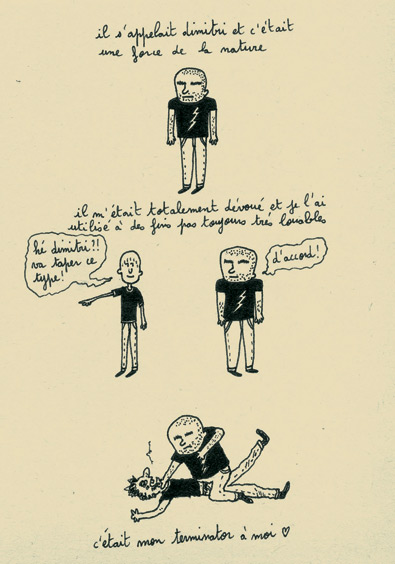 il s'appelait dimitri et c'était
une force de la nature
il m'était totalement dévoué et je l'ai
utilisé à des fins pas toujours très louables
hé dimitri?!
va taper ce
type!
d'accord!
c'était mon terminator à moi ♡